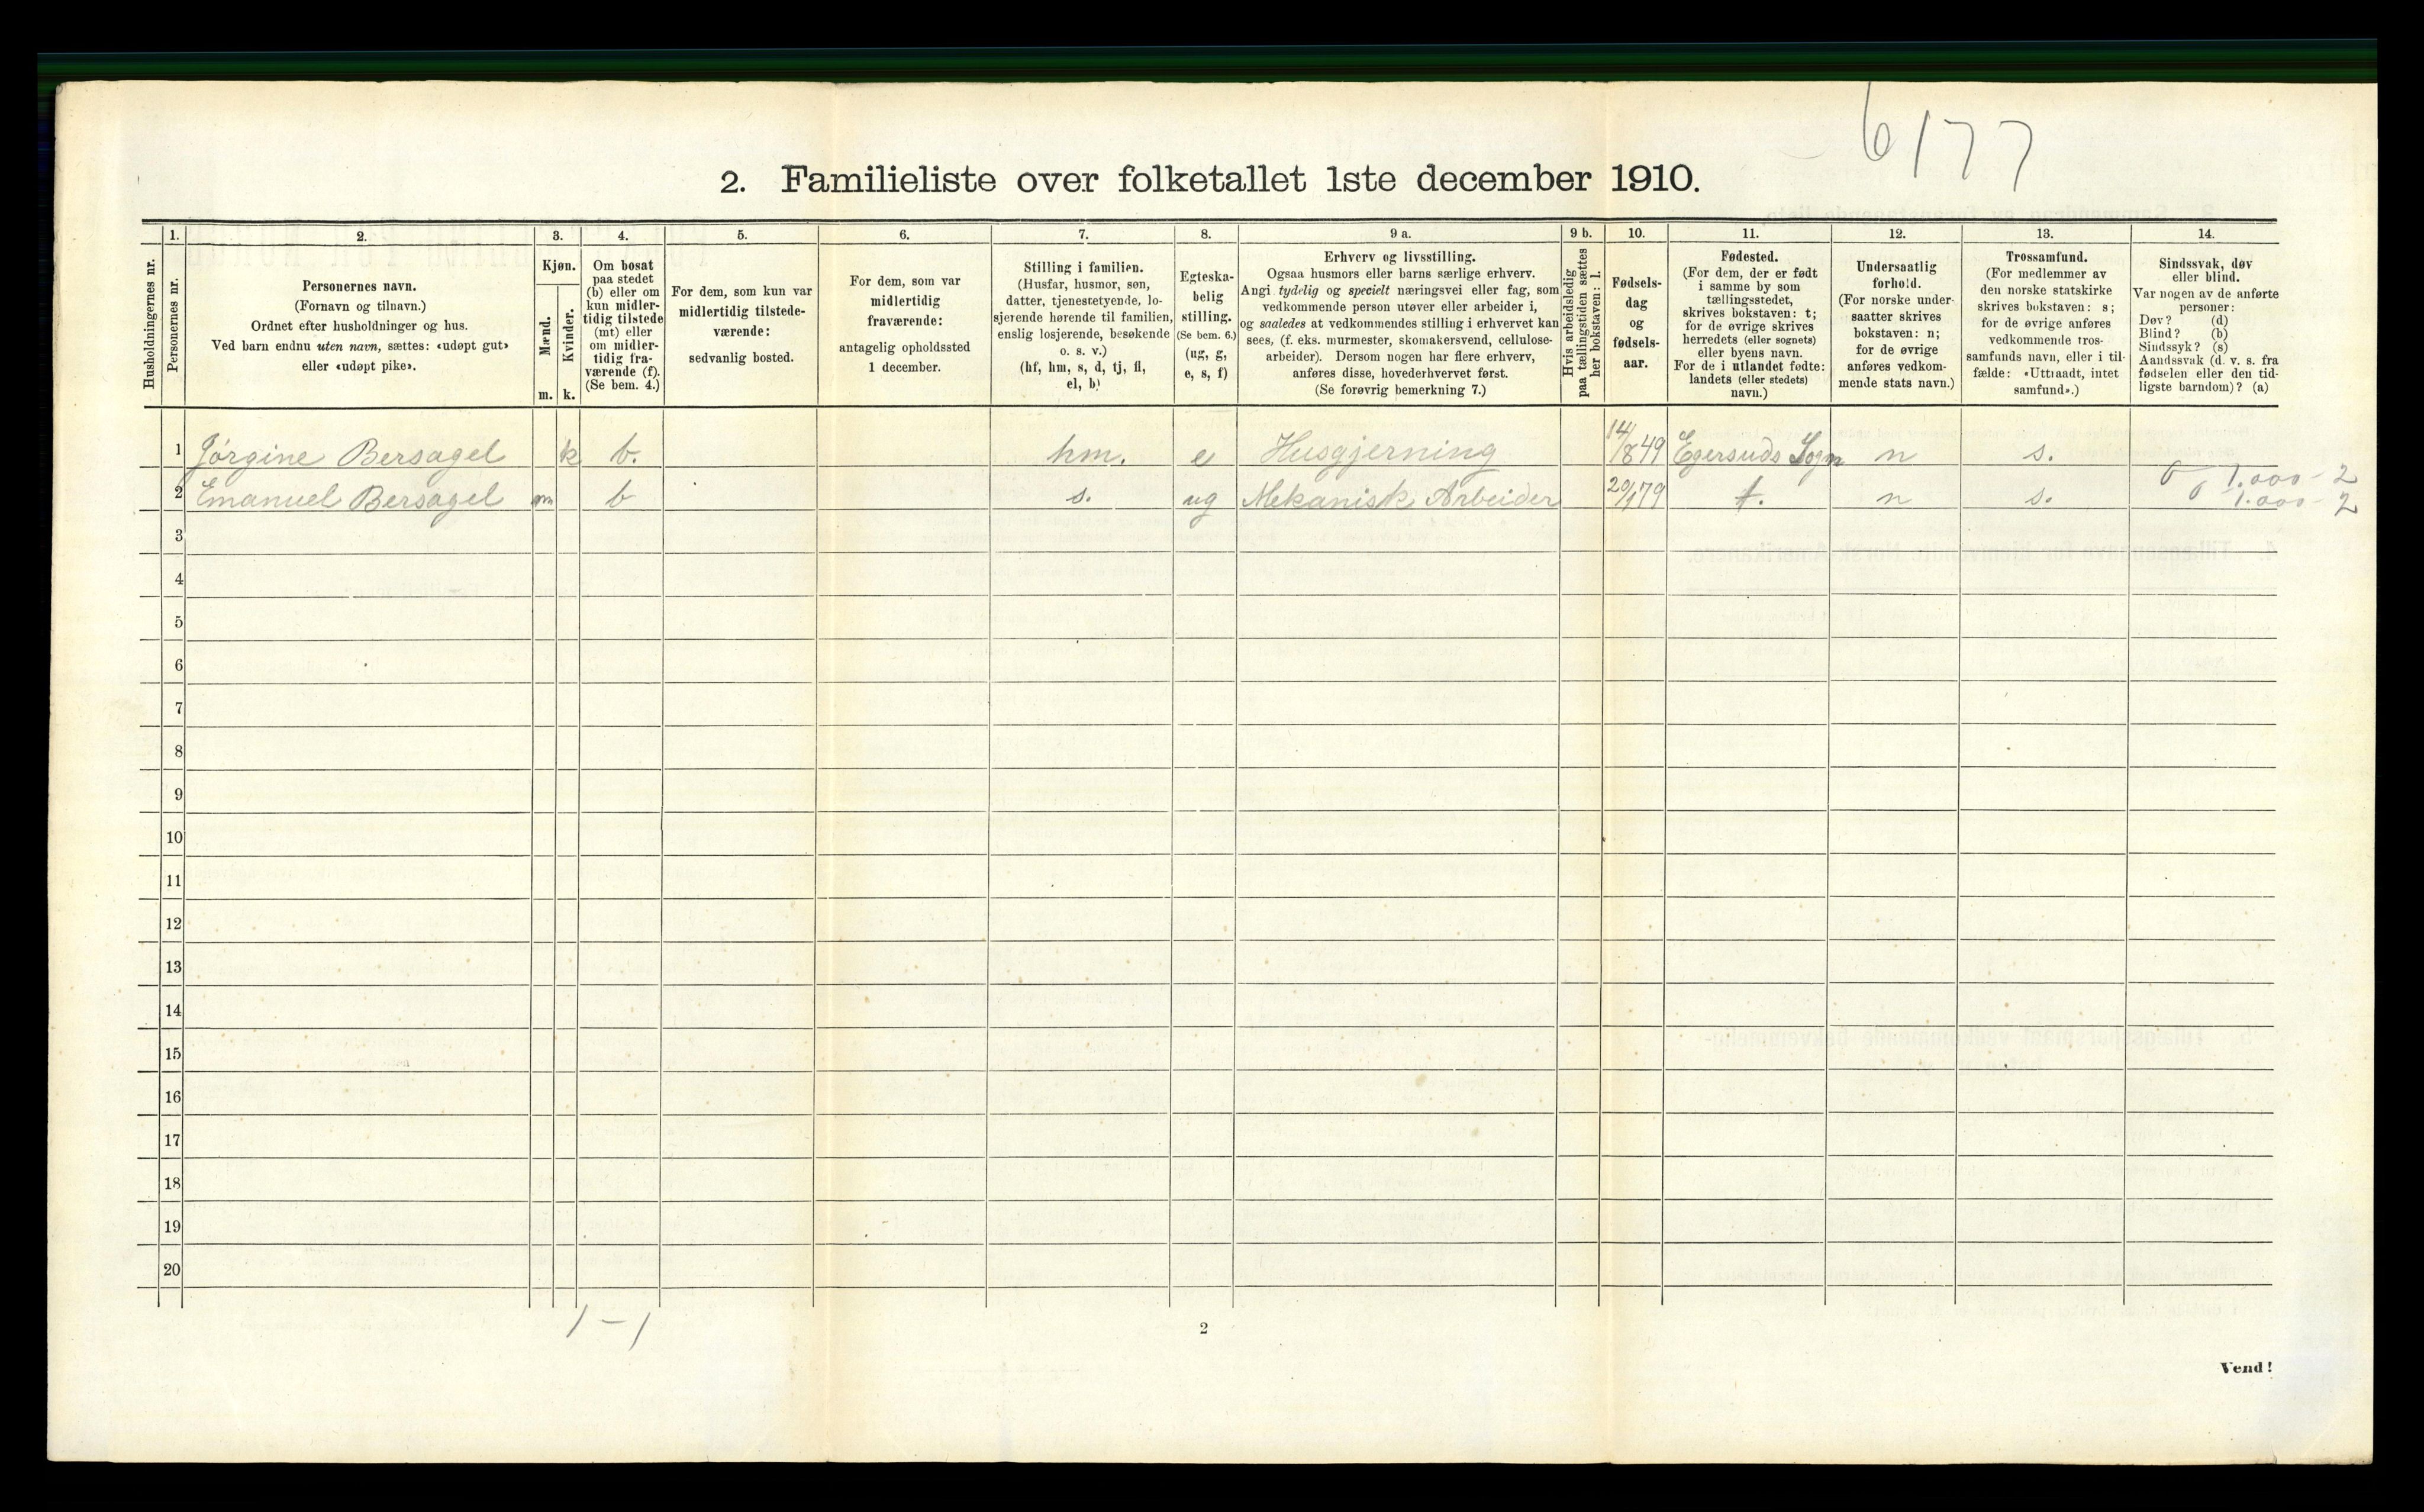 6177
2. Familieliste over folketallet 1ste december 1910.
Husholdningernes nr.
1.
Personernes nr.
2.
Personernes navn.
(Fornavn og tilnavn.)
Ordnet efter husholdninger og hus.
Ved barn endnu uten navn, sættes: «udøpt gut»
eller «udøpt pike».
3.
Kjøn.
Mænd.
Kvinder.
m. k.
4.
Om bosat
paa stedet
(b) eller om
kun midler-
tidig tilstede
(mt) eller
om midler-
tidig fra-
værende (f).
(Se bem. 4.)
5.
For dem, som kun var
midlertidig tilstede-
værende:
sedvanlig bosted.
6.
For dem, som var
midlertidig
fraværende:
antagelig opholdssted
1 december.
7.
Stilling i familien.
(Husfar, husmor, søn,
datter, tjenestetyende, lo-
sjerende hørende til familien,
enslig losjerende, besøkende
o. s. v.)
(hf, hm, s, d, tj, fl,
el, b)
8.
Egteska-
belig
stilling.
(Se bem. 6.)
(ug, g,
e, s, f)
9 a.
Erhverv og livsstilling.
Ogsaa husmors eller barns særlige erhverv.
Angi tydelig og specielt næringsvei eller fag, som
vedkommende person utøver eller arbeider i,
og saaledes at vedkommendes stilling i erhvervet kan
sees, (f. eks. murmester, skomakersvend, cellulose-
arbeider). Dersom nogen har flere erhverv,
anføres disse, hovederhvervet først.
(Se forøvrig bemerkning 7.)
9 b.
Hvis arbeidsledig
paa tællingstiden sættes
her bokstaven: l.
10.
Fødsels-
dag
og
fødsels-
aar.
11.
Fødested.
(For dem, der er født
i samme by som
tællingsstedet,
skrives bokstaven: t;
for de øvrige skrives
herredets (eller sognets)
eller byens navn.
For de i utlandet fødte:
landets (eller stedets)
navn.)
12.
Undersaatlig
forhold.
(For norske under-
saatter skrives
bokstaven: n;
for de øvrige
anføres vedkom-
mende stats navn.)
13.
Trossamfund.
(For medlemmer av
den norske statskirke
skrives bokstaven: s;
for de øvrige anføres
vedkommende tros-
samfunds navn, eller i til-
fælde: «Uttraadt, intet
samfund».)
14.
Sindssvak, døv
eller blind.
Var nogen av de anførte
personer:
Døv? (d)
Blind? (b)
Sindssyk? (s)
Aandssvak (d. v. s. fra
fødselen eller den tid-
ligste barndom)? (a)
1 Jørgine Bersagel k b. hm. e Husgjerning 14/849 Egersuds Sogn n s. 0 1.000 - 2
2 Emanuel Bersagel m b s. ug Mekanisk Arbeider 20/179 t. n s. 0 1.000 - 2
3
4
5
6
7
8
9
10
11
12
13
14
15
16
17
18
19
20
1 - 1
2
Vend!